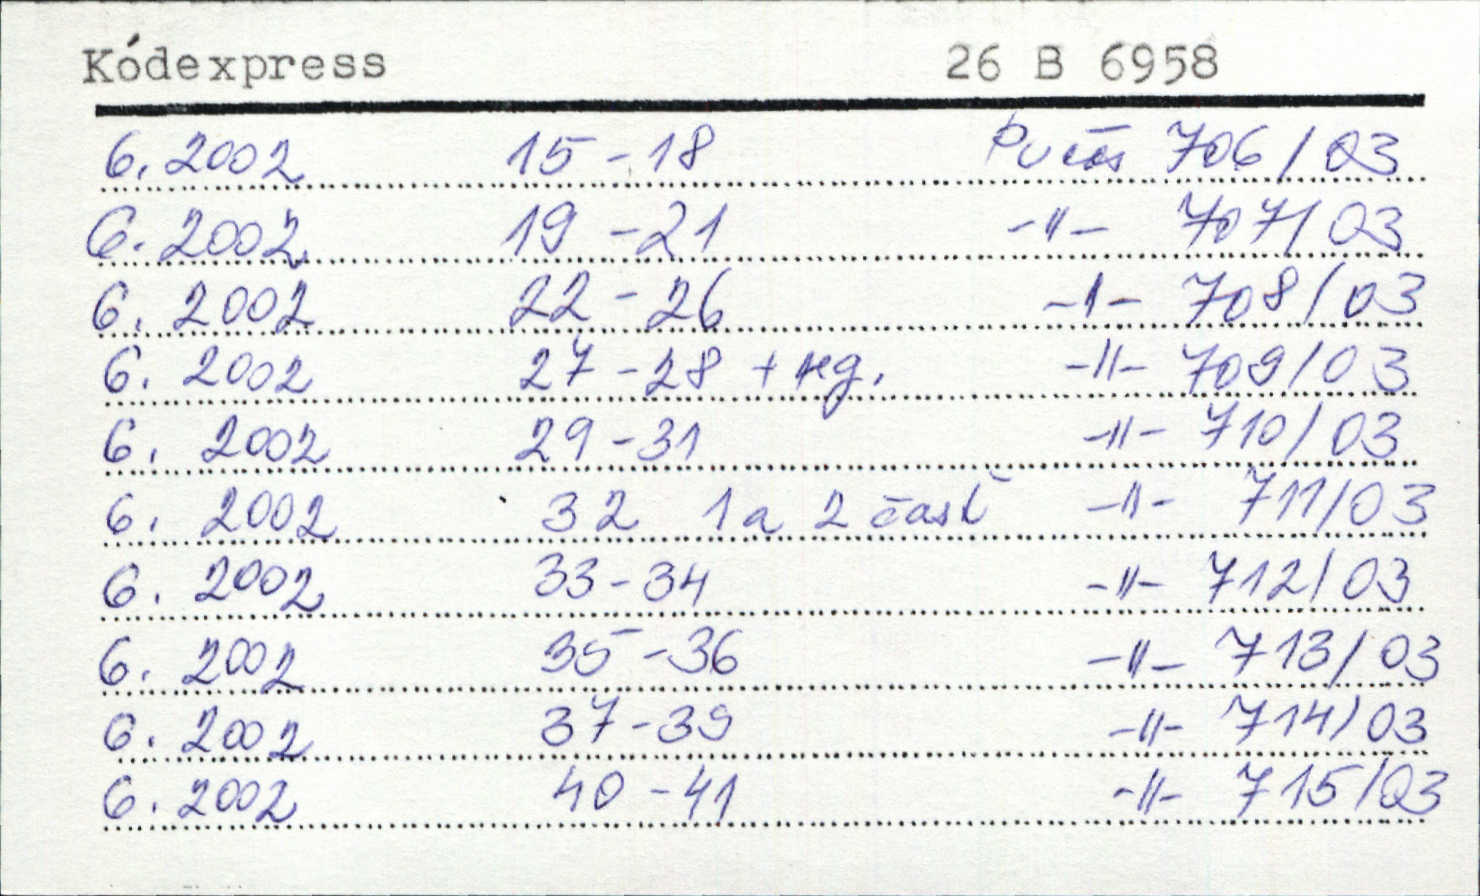 Kódexpress 26 B 6958
6. 2002 15 - 18 706/03
6. 2002 19 - 21 -"- 707/03
6. 2002 22 - 26 -"- 708/03
6. 2002 27 - 28 + reg. -"- 709/03
6. 2002 29 - 31 -"- 710/03
6. 2002 32 1 a 2 časť -"- 711/03
6. 2002 33 - 34 -"- 712/03
6. 2002 35 - 36 -"- 713/03
6. 2002 37 - 39 -"- 714/03
6. 2002 40 - 41 -"- 715/03